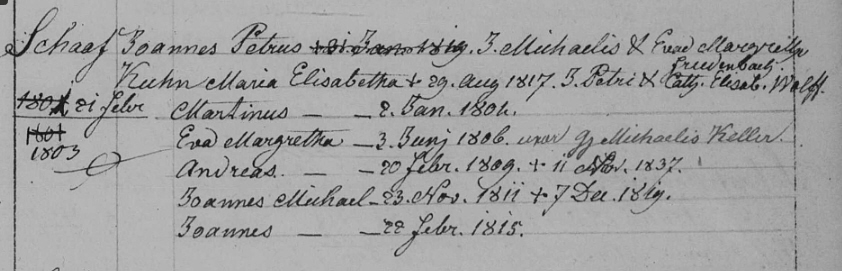 Schaaf Joannes Petrus + 21 Jan. 1819. F. Michaelis & Evae Margretha
Friedenbach.
Kuhn Maria Elisabetha + 29. Aug 1817. F. Petri & Cath. Elisab. Wolff.
1804 21 febr Martinus — — 2. Jan. 1804.
1801 Eva Margretha — 3. Junj 1806. uxor Michaelis Keller.
1803
Andreas. — — 20 febr. 1809. + 11 Nov. 1837.
Joannes Michael — 23. Nov. 1811 + 7 Dec. 1819.
Joannes — — 22 febr. 1815.